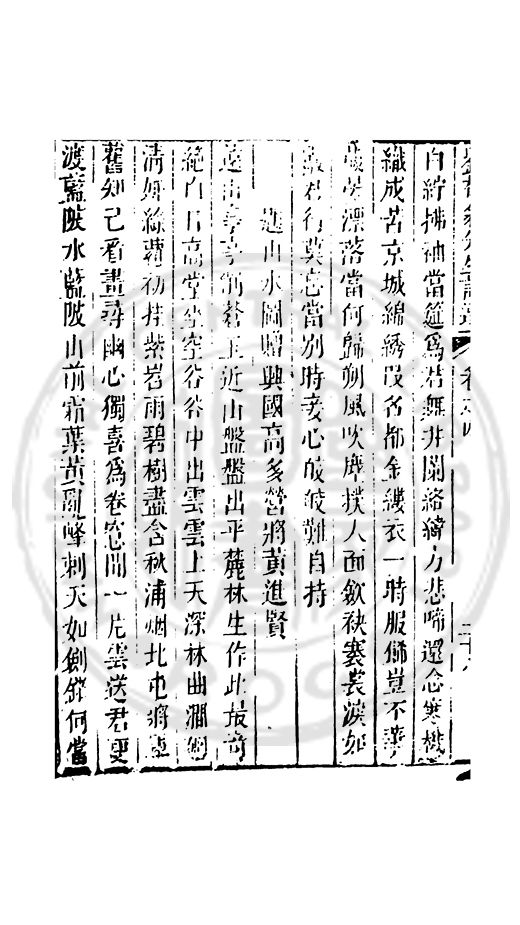 卷之四
白紵拂袖當筵為君舞井闌絡緯方悲啼還念寒機
織成苦京城綿綉段名都金縷衣一時服飾豈不華
漂落當何歸朔風吹塵撲人面斂袂褰裳淚如
君行莫忘當別時妾心皎皎難自持
題山水圖贈興國高多營將黃進賢
遠山亭亭削蒼玉近山盤盤出平麓林生作此最奇
絕白日高堂坐空谷谷中出雲雲上天深林幽澗
清如絲蘿初挂紫岩雨碧樹盡含秋浦烟北屯將軍
舊知己看畫尋幽心獨喜為卷窓間一片雲送君更
渡藍陂水藍陂山前霜葉黃亂峰刺天如劍鋩何當